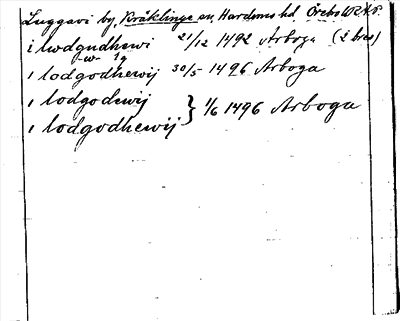 Luggavi by, Kräklinge sn, Hardemo hd Örebro
i lwdgudhewi 21/12 1492 Arboga (2 brev)
-w- 1g
i lodgodhewij 30/5 1496 Arboga
i lodgodewij } 1/6 1496 Arboga
i lodgodhewij